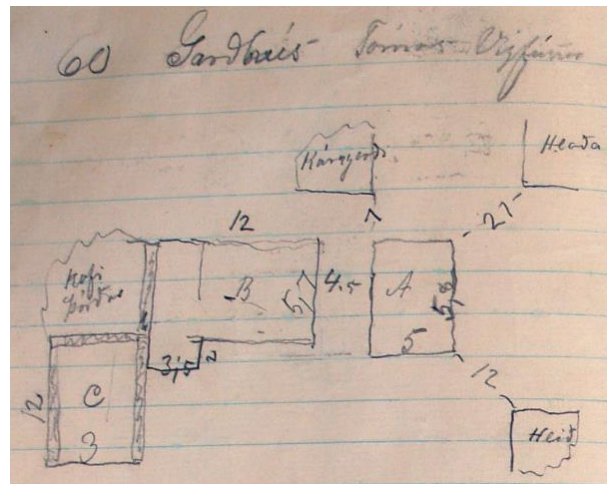 60 Garðhús Tómas Vigfússon
Káragerði
Hlaða
12
7
27
Kofi
Þórðar
B
5,7
4.5
A
5,8
5
3,5
2
12
12
C
3
Heið